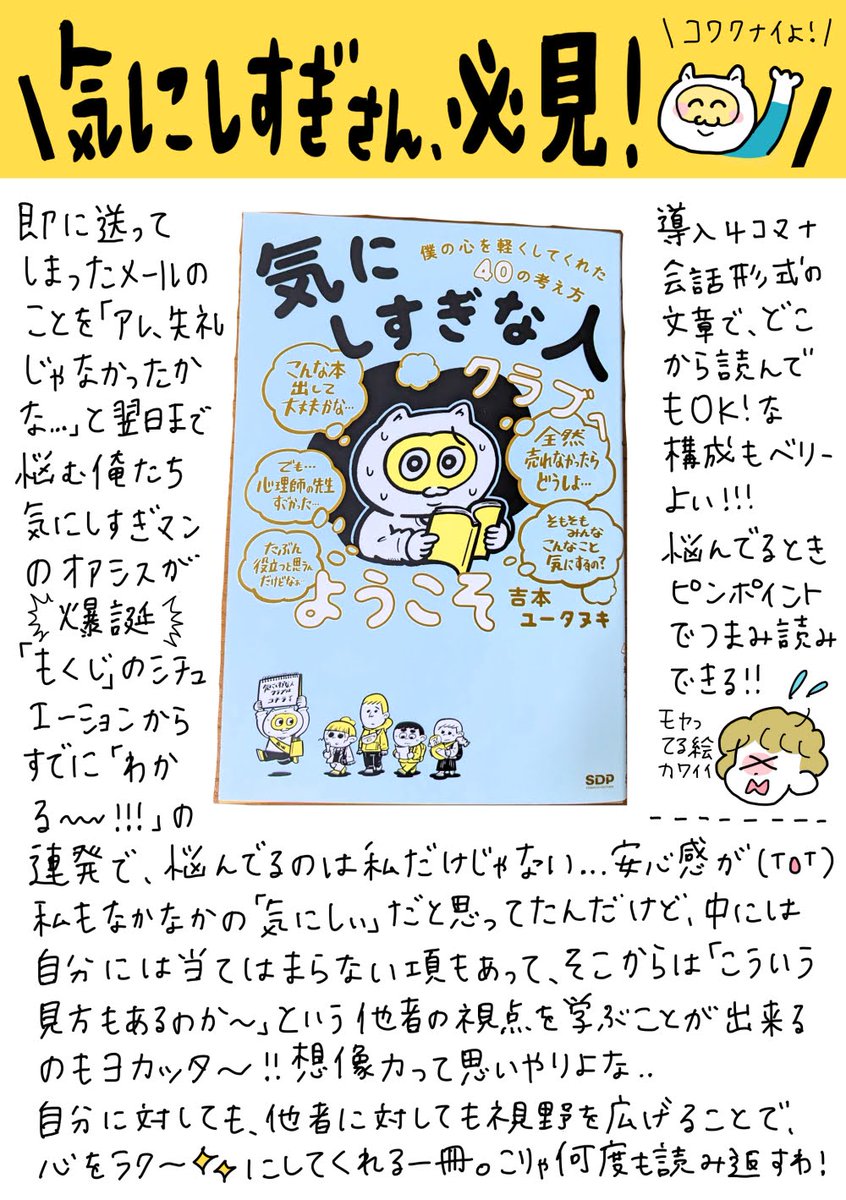 コワクナイよ!
気にしすぎさん、必見!
即に送って
しまったメールの
ことを「アレ、失礼
じゃなかったか
な…」と翌日まで
悩む俺たち
気にしすぎマン
のオアシスが
爆誕
「もくじ」のシチュ
エーションから
すでに「わか
る〜〜!!!」の
僕の心を軽くしてくれた
40の考え方
気に
しすぎな人
クラブへ
こんな本
出して
大丈夫かな…
でも…
心理師の先生
すごかった…
たぶん
役立つと思うん
だけどなぁ…
全然
売れなかったら
どうしよ…
そもそも
みんな
こんなこと
気にするの?
ようこそ
吉本
ユータヌキ
気にしすぎな人
クラブは
コチライ
SDP
導入4コマナ
会話形式の
文章で、どこ
から読んで
もOK!な
構成もベリー
よい!!!
悩んでるとき
ピンポイント
でつまみ読み
できる!!
モヤっ
てる絵
カワイイ
連発で、悩んでるのは私だけじゃない…安心感が(ToT)
私もなかなかの「気にしい」だと思ってたんだけど、中には
自分には当てはまらない項もあって、そこからは「こういう
見方もあるのか〜」という他者の視点を学ぶことが出来る
のもヨカッタ〜!!想像力って思いやりよな..
自分に対しても、他者に対しても視野を広げることで、
心をラク〜にしてくれる一冊。こりゃ何度も読み返すわ!